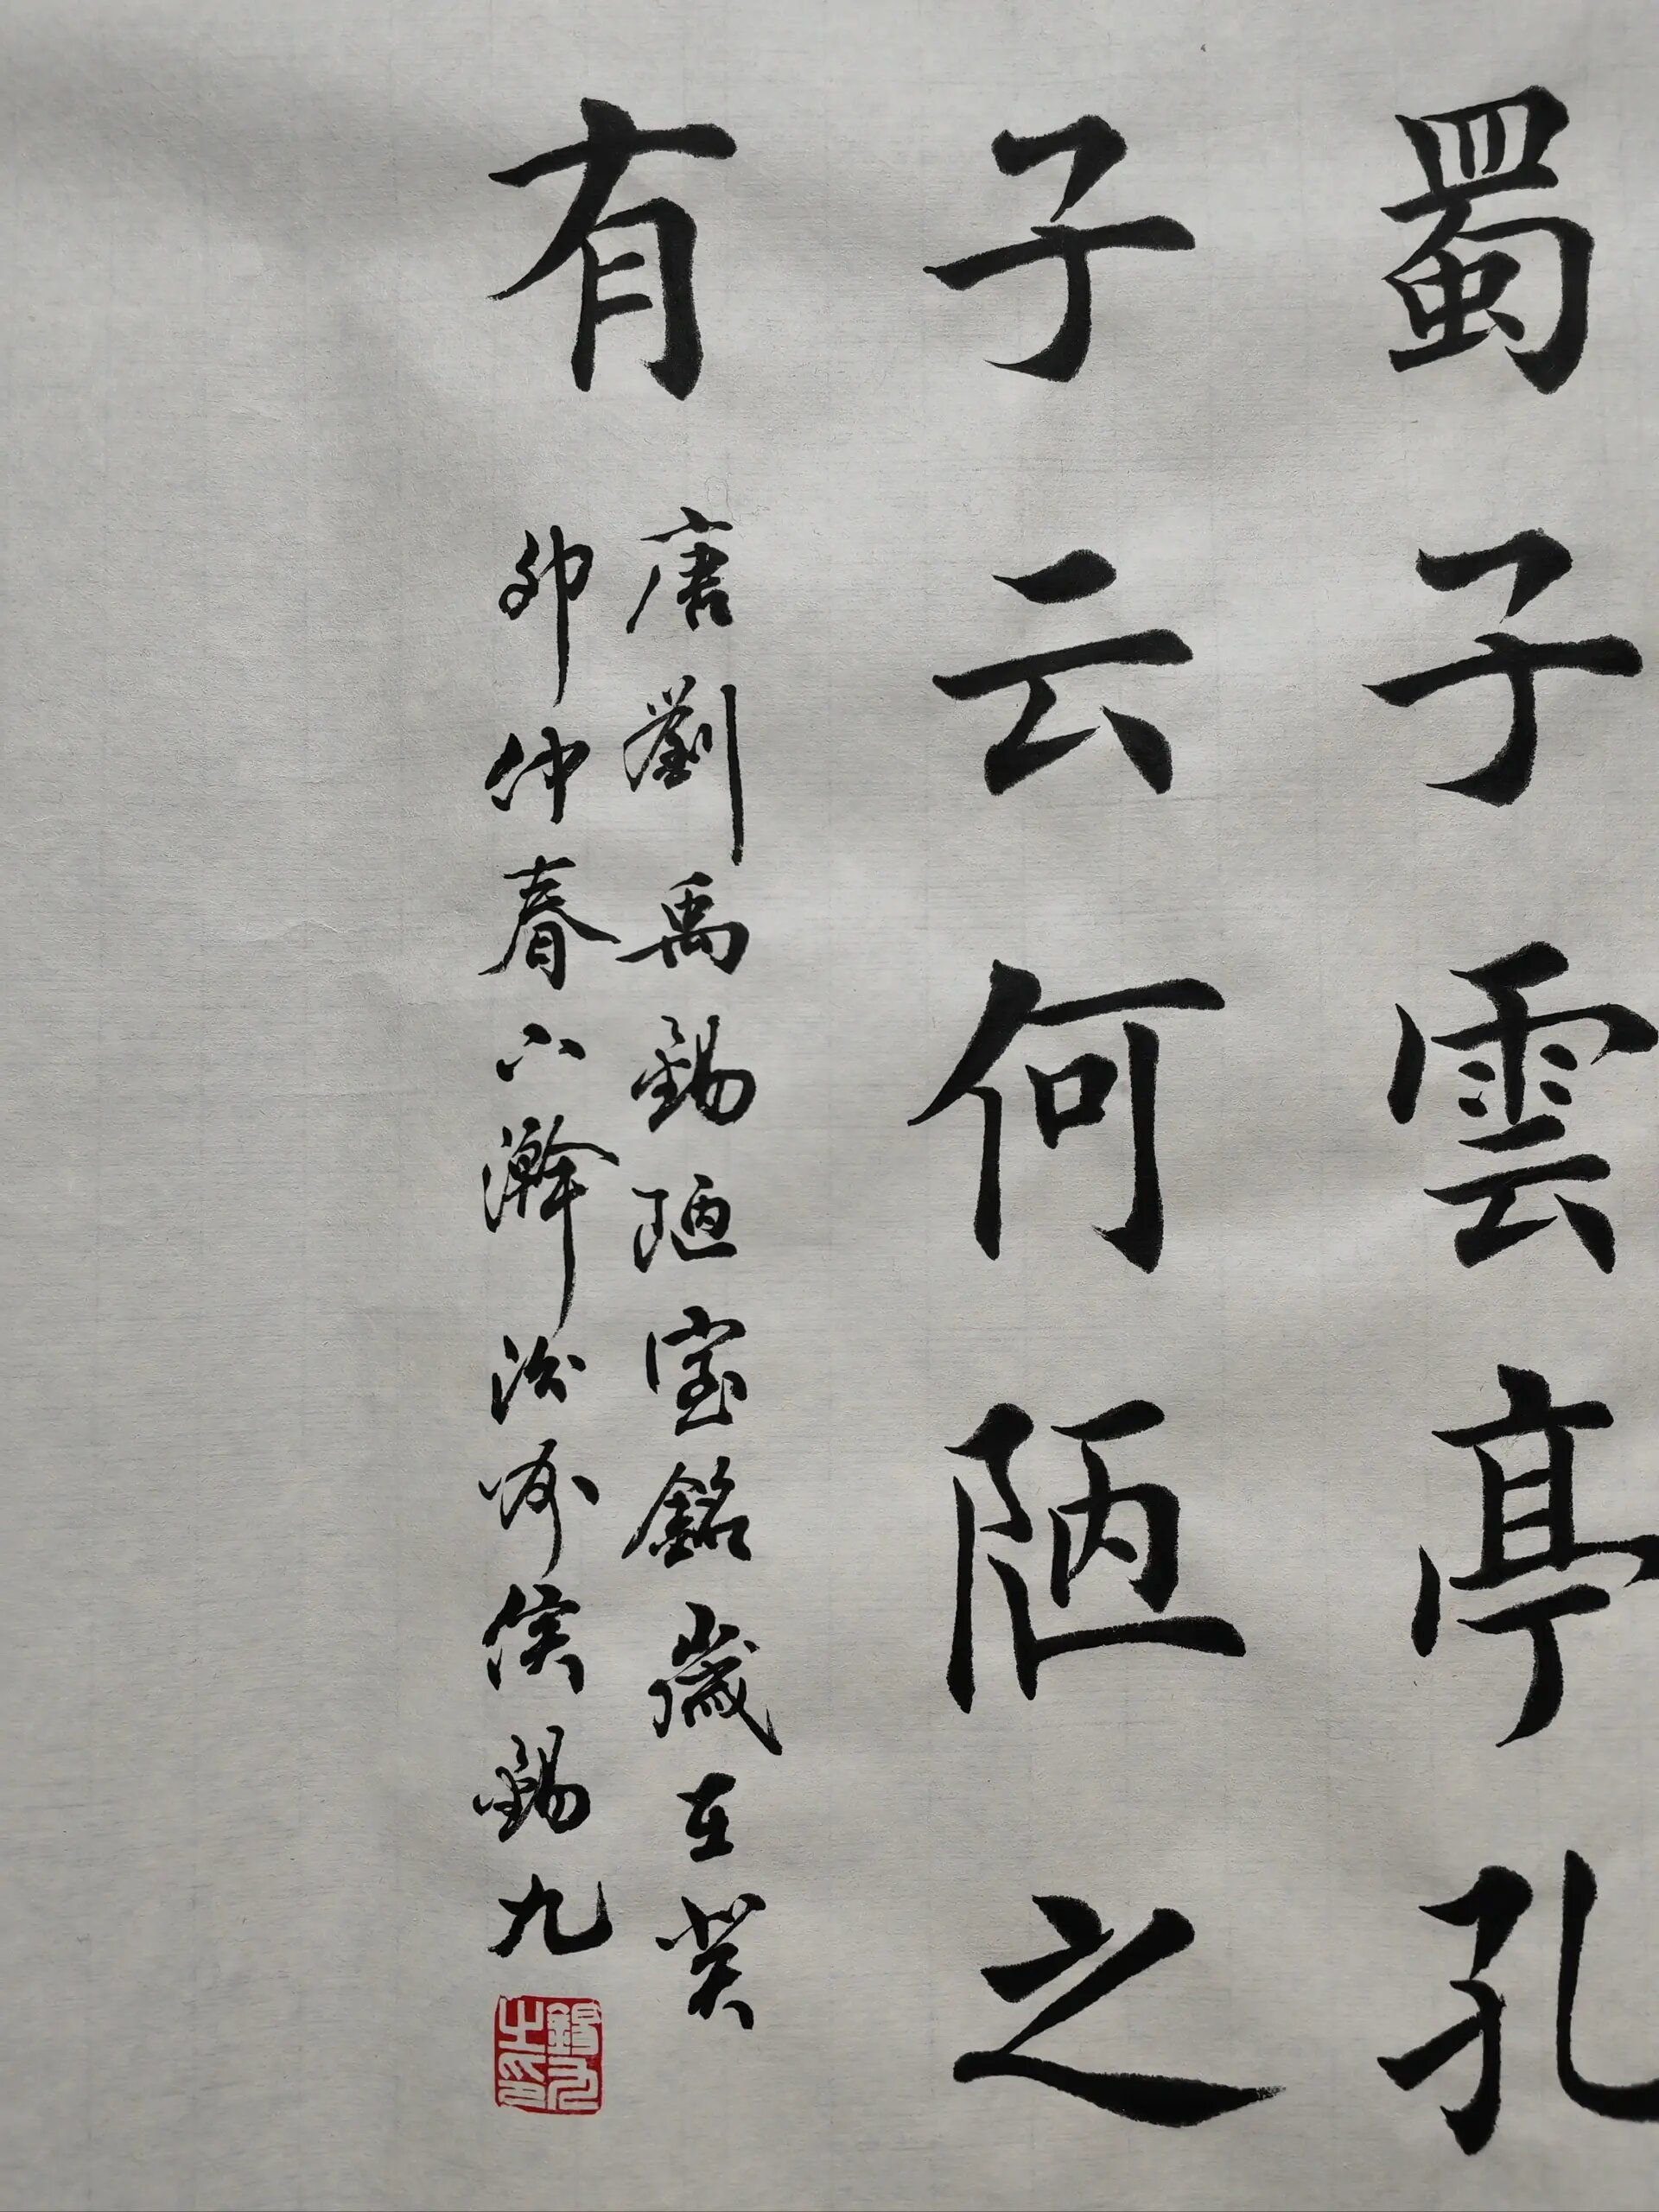 蜀子雲亭孔
子云何陋之
有
唐劉禹錫陋室銘歲在癸
卯仲春下澣侯錫九
錫九之印